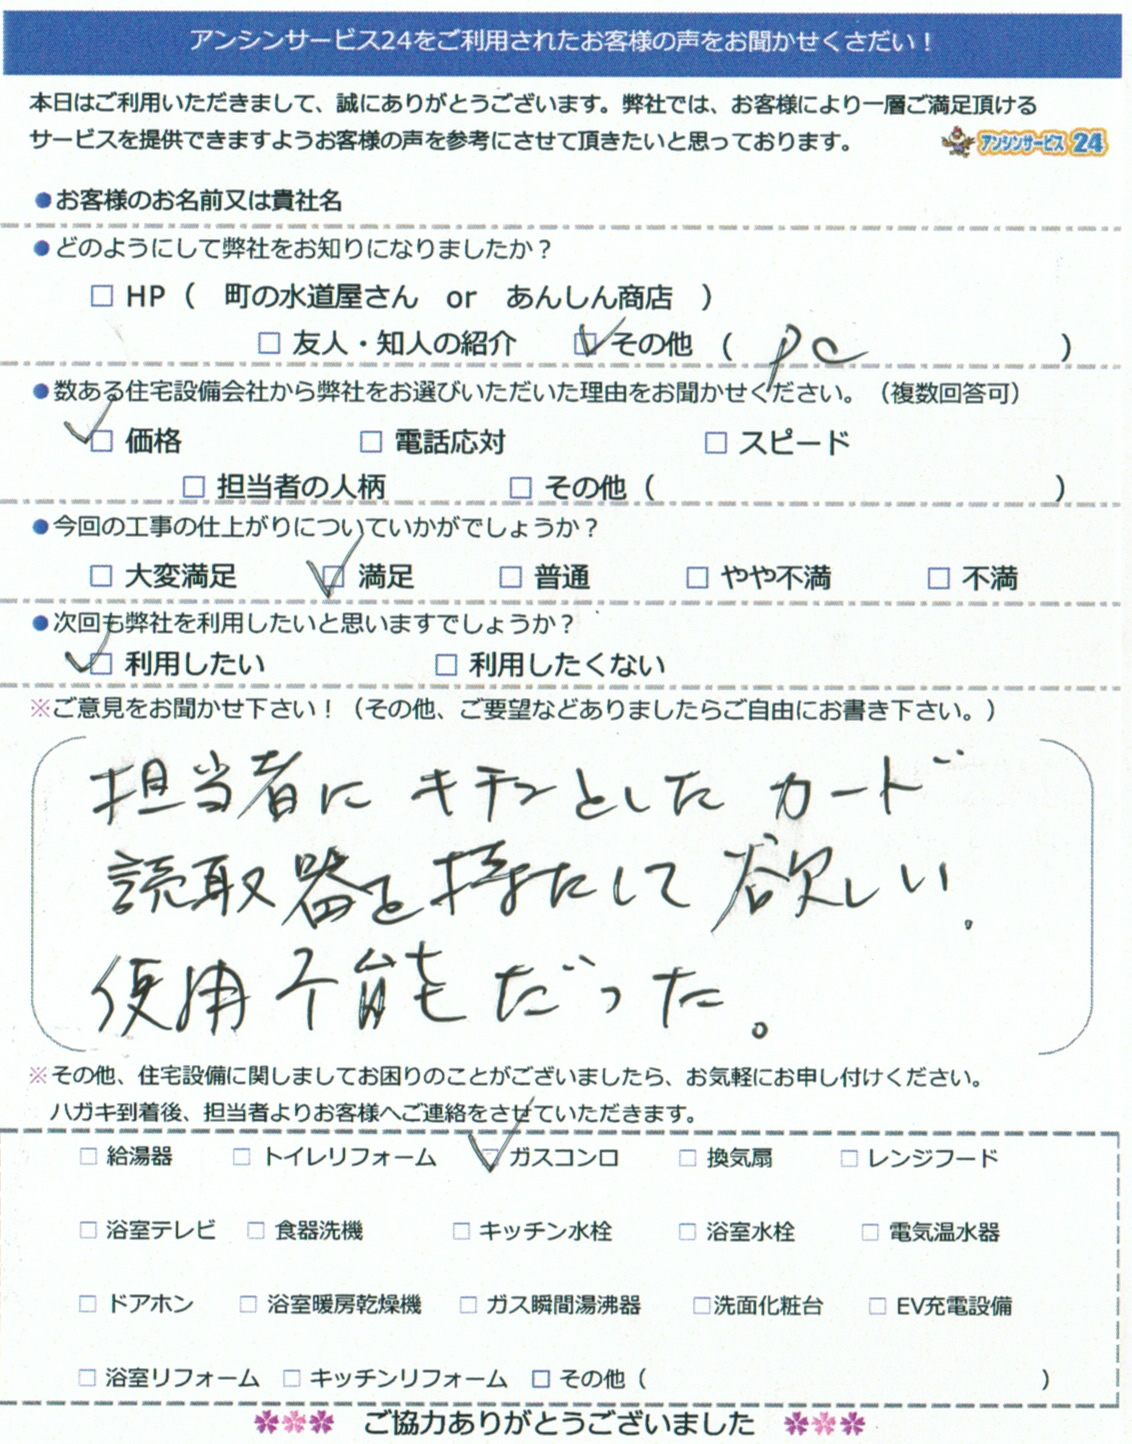 アンシンサービス24をご利用されたお客様の声をお聞かせくさだい！
本日はご利用いただきまして、誠にありがとうございます。弊社では、お客様により一層ご満足頂ける
サービスを提供できますようお客様の声を参考にさせて頂きたいと思っております。
アンシンサービス24
●お客様のお名前又は貴社名
●どのようにして弊社をお知りになりましたか？
□ HP（ 町の水道屋さん or あんしん商店 ）
□ 友人・知人の紹介 ☑ その他 （ PC ）
●数ある住宅設備会社から弊社をお選びいただいた理由をお聞かせください。（複数回答可）
☑ 価格 □ 電話応対 □ スピード
□ 担当者の人柄 □ その他（ ）
●今回の工事の仕上がりについていかがでしょうか？
□ 大変満足 ☑ 満足 □ 普通 □ やや不満 □ 不満
●次回も弊社を利用したいと思いますでしょうか？
☑ 利用したい □ 利用したくない
※ご意見をお聞かせ下さい！（その他、ご要望などありましたらご自由にお書き下さい。）
担当者にキチンとしたカード
読取器を持たして欲しい。
使用不能だった。
※その他、住宅設備に関しましてお困りのことがございましたら、お気軽にお申し付けください。
ハガキ到着後、担当者よりお客様へご連絡をさせていただきます。
□ 給湯器 □ トイレリフォーム ☑ ガスコンロ □ 換気扇 □ レンジフード
□ 浴室テレビ □ 食器洗機 □ キッチン水栓 □ 浴室水栓 □ 電気温水器
□ ドアホン □ 浴室暖房乾燥機 □ ガス瞬間湯沸器 □洗面化粧台 □ EV充電設備
□ 浴室リフォーム □ キッチンリフォーム □ その他（ ）
ご協力ありがとうございました